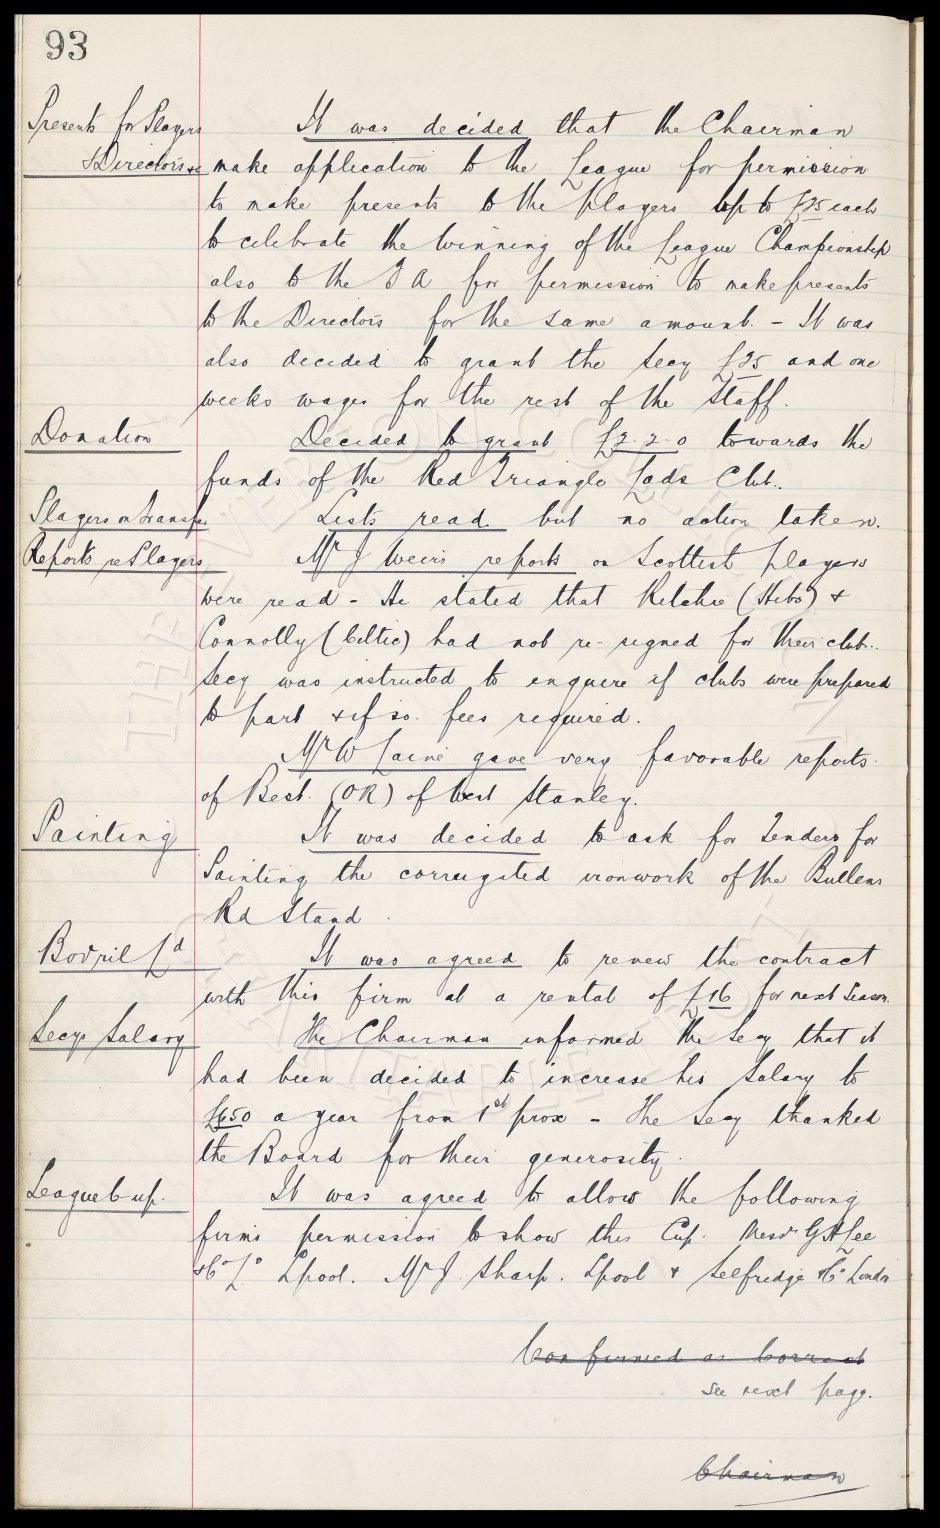 93
Presents for Players
& Directors &c
It was decided that the Chairman
make application to the League for permission
to make presents to the players up to £25 each
to celebrate the winning of the League Championship
also to the F A for permission to make presents
to the Directors for the same amount. - It was
also decided to grant the Secy £25 and one
weeks wages for the rest of the Staff.
Donation
Decided to grant £2.2.0 towards the
funds of the Red Triangle Lads Club.
Players on Transfer
Lists read but no action taken.
Reports re Players
Mr J Weirs reports on Scottish players
were read - He stated that Ritchie (Hibs) &
Connolly (Celtic) had not re-signed for their club..
Secy was instructed to enquire if clubs were prepared
to part & if so. fees required.
Mr W Laine gave very favorable reports
of Best. (OR) of West Stanley.
Painting
It was decided to ask for Tenders for
Painting the corrugated ironwork of the Bullens
Rd Stand.
Bovril Ld
It was agreed to renew the contract
with this firm at a rental of £16 for next Season.
Secys Salary
The Chairman informed the Secy that it
had been decided to increase his Salary to
£650 a year from 1st prox - The Secy thanked
the Board for their generosity.
League Cup.
It was agreed to allow the following
firms permission to show this Cup. Messrs G H Lee
& Co Lo Lpool. Mr J. Sharp. Lpool & Selfridge & Co London
Confirmed as Correct
see next page.
Chairman